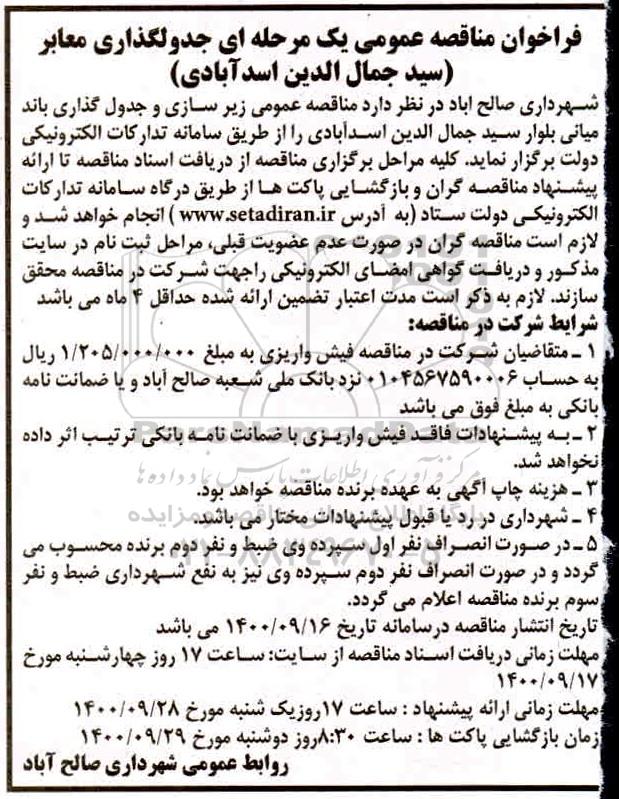 فراخوان مناقصه عمومی یک مرحله ای جدولگذاری معابر
(سید جمال الدین اسدآبادی)
شهرداری صالح اباد در نظر دارد مناقصه عمومی زیر سازی و جدول گذاری باند
میانی بلوار سید جمال الدین اسدآبادی را از طریق سامانه تدارکات الکترونیکی
دولت برگزار نماید. کلیه مراحل برگزاری مناقصه از دریافت اسناد مناقصه تا ارائه
پیشنهاد مناقصه گران و بازگشایی پاکت ها از طریق درگاه سامانه تدارکات
الکترونیکی دولت ستاد (به آدرس www.setadiran.ir) انجام خواهد شد و
لازم است مناقصه گران در صورت عدم عضویت قبلی، مراحل ثبت نام در سایت
مذکور و دریافت گواهی امضای الکترونیکی راجهت شرکت در مناقصه محقق
سازند. لازم به ذکر است مدت اعتبار تضمین ارائه شده حداقل ۴ ماه می باشد
شرایط شرکت در مناقصه:
۱ ـ متقاضیان شرکت در مناقصه فیش واریزی به مبلغ ۱/۲۰۵/۰۰۰/۰۰۰ ریال
به حساب ۰۱۰۴۵۶۷۵۹۰۰۰۶ نزد بانک ملی شعبه صالح آباد و یا ضمانت نامه
بانکی به مبلغ فوق می باشد
۲ ـ به پیشنهادات فاقد فیش واریزی با ضمانت نامه بانکی ترتیب اثر داده
نخواهد شد.
۳ ـ هزینه چاپ آگهی به عهده برنده مناقصه خواهد بود.
۴ ـ شهرداری در رد یا قبول پیشنهادات مختار می باشد.
۵ ـ در صورت انصراف نفر اول سپرده وی ضبط و نفر دوم برنده محسوب می
گردد و در صورت انصراف نفر دوم سپرده وی نیز به نفع شهرداری ضبط و نفر
سوم برنده مناقصه اعلام می گردد.
تاریخ انتشار مناقصه درسامانه تاریخ ۱۴۰۰/۰۹/۱۶ می باشد
مهلت زمانی دریافت اسناد مناقصه از سایت: ساعت ۱۷ روز چهارشنبه مورخ
۱۴۰۰/۰۹/۱۷
مهلت زمانی ارائه پیشنهاد : ساعت ۱۷روزیک شنبه مورخ ۱۴۰۰/۰۹/۲۸
زمان بازگشایی پاکت ها : ساعت ۸:۳۰روز دوشنبه مورخ ۱۴۰۰/۰۹/۲۹
روابط عمومی شهرداری صالح آباد